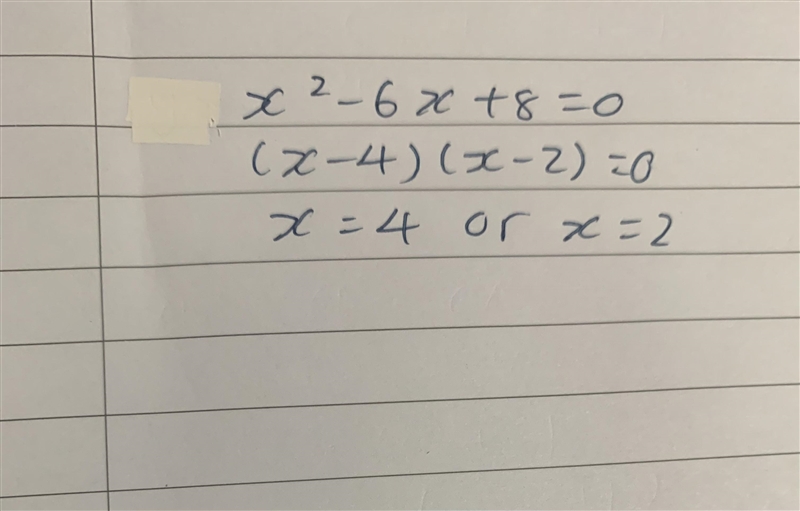 x² - 6x + 8 = 0
(x - 4)(x - 2) = 0
x = 4 or x = 2